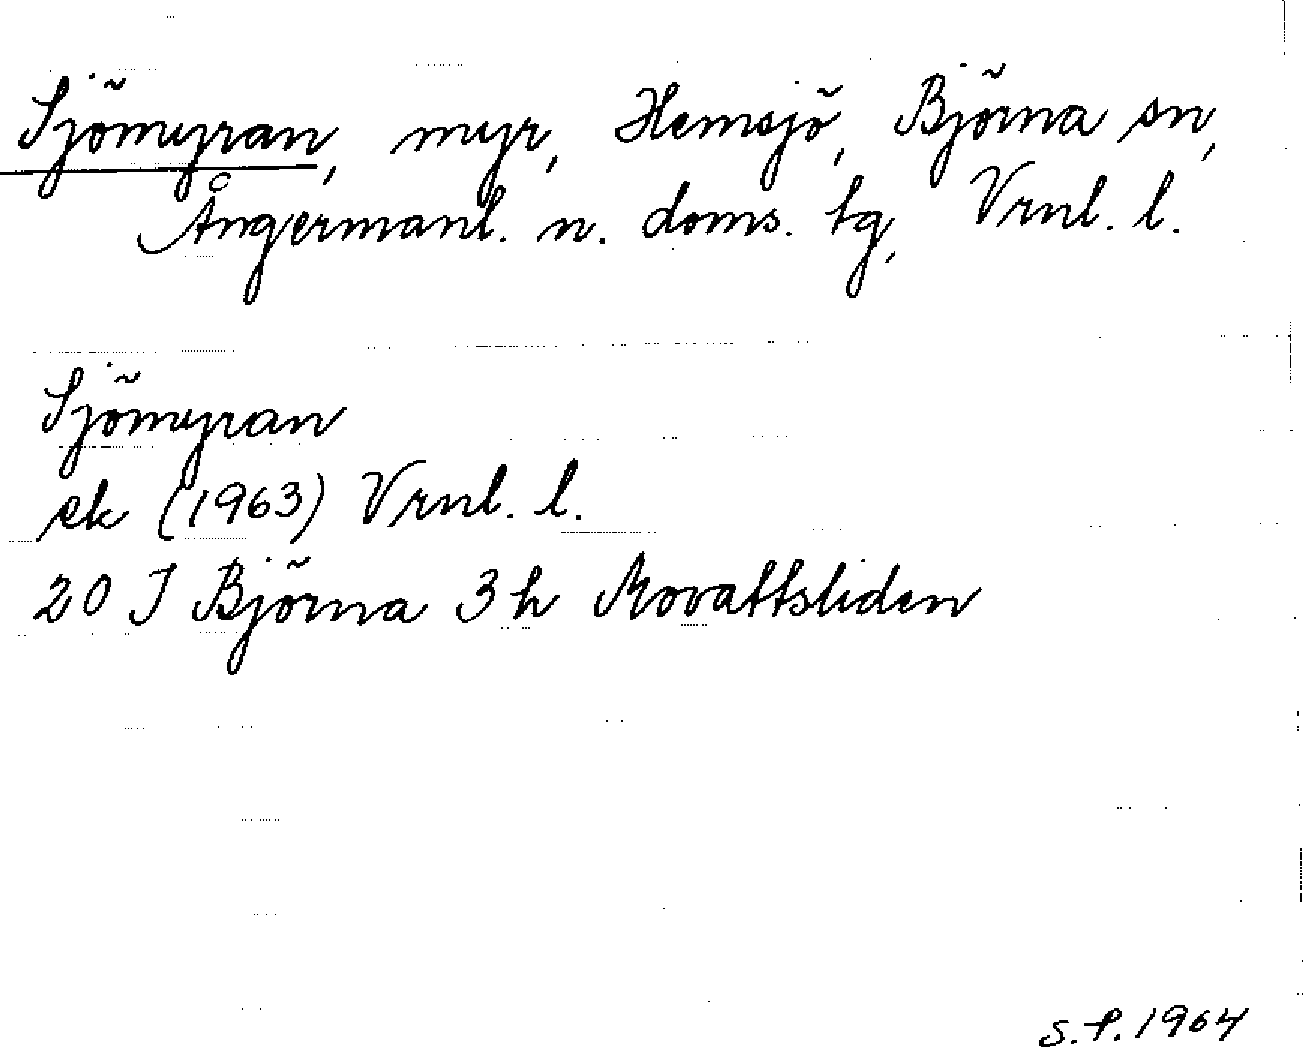 Sjömyran, myr, Hemsjö, Björna sn,
Ångermanl. n. doms. tg, Vrnl. l.
Sjömyran
ek (1963) Vrnl. l.
20 J Björna 3 h Movattsliden
S.P. 1964